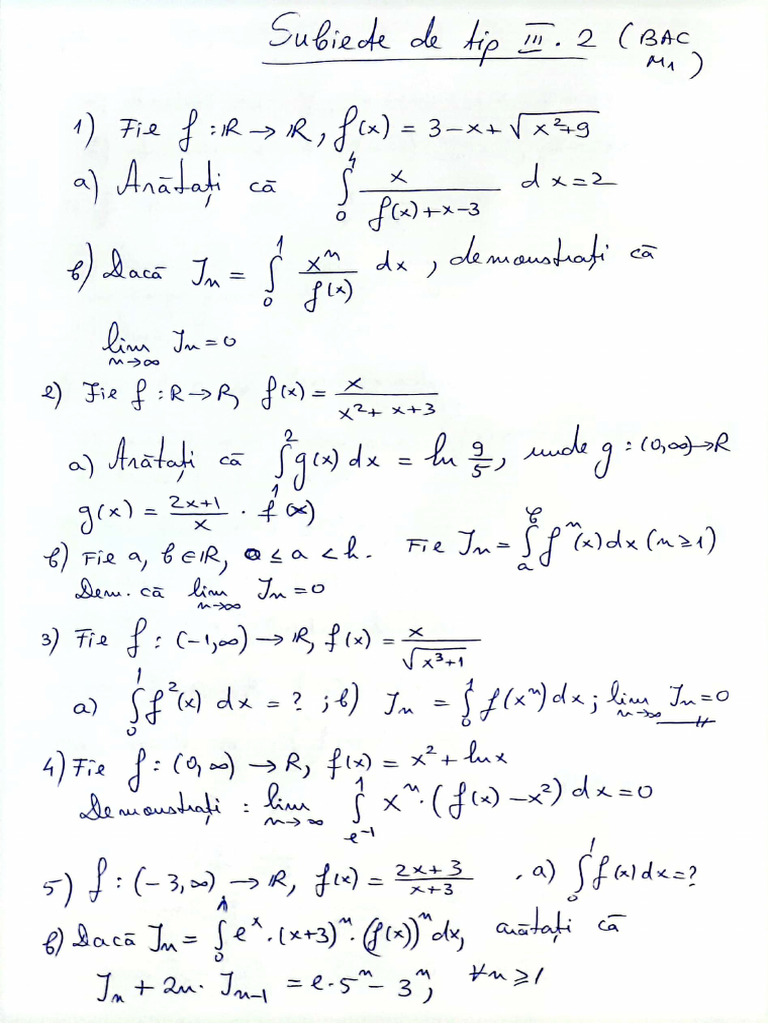 Subiecte de tip III.2 (BAC M1)
1) Fie f : R → R, f(x) = 3 - x + √(x²+9)
a) Arătați că ∫₀⁴ x/(f(x)+x-3) dx = 2
b) Dacă Iₙ = ∫₀¹ xⁿ/f(x) dx, demonstrați că
lim_{n→∞} Iₙ = 0
2) Fie f : R → R, f(x) = x/(x²+x+3)
a) Arătați că ∫₁² g(x) dx = ln 9/5, unde g : (0,∞) → R
g(x) = (2x+1)/x · f(x)
b) Fie a, b ∈ R, 0 ≤ a < b. Fie Iₙ = ∫ₐᵇ fⁿ(x) dx (n ≥ 1)
Dem. că lim_{n→∞} Iₙ = 0
3) Fie f : (-1,∞) → R, f(x) = x/√(x³+1)
a) ∫₀¹ f²(x) dx = ? ; b) Iₙ = ∫₀¹ f(xⁿ) dx ; lim_{n→∞} Iₙ = 0
4) Fie f : (0,∞) → R, f(x) = x² + ln x
Demonstrați : lim_{n→∞} ∫_{e⁻¹}¹ xⁿ · (f(x) - x²) dx = 0
5) f : (-3,∞) → R, f(x) = (2x+3)/(x+3) . a) ∫₀¹ f(x) dx = ?
b) Dacă Iₙ = ∫₀¹ eˣ · (x+3)ⁿ · (f(x))ⁿ dx, arătați că
Iₙ + 2n · Iₙ₋₁ = e · 5ⁿ - 3ⁿ, ∀n ≥ 1